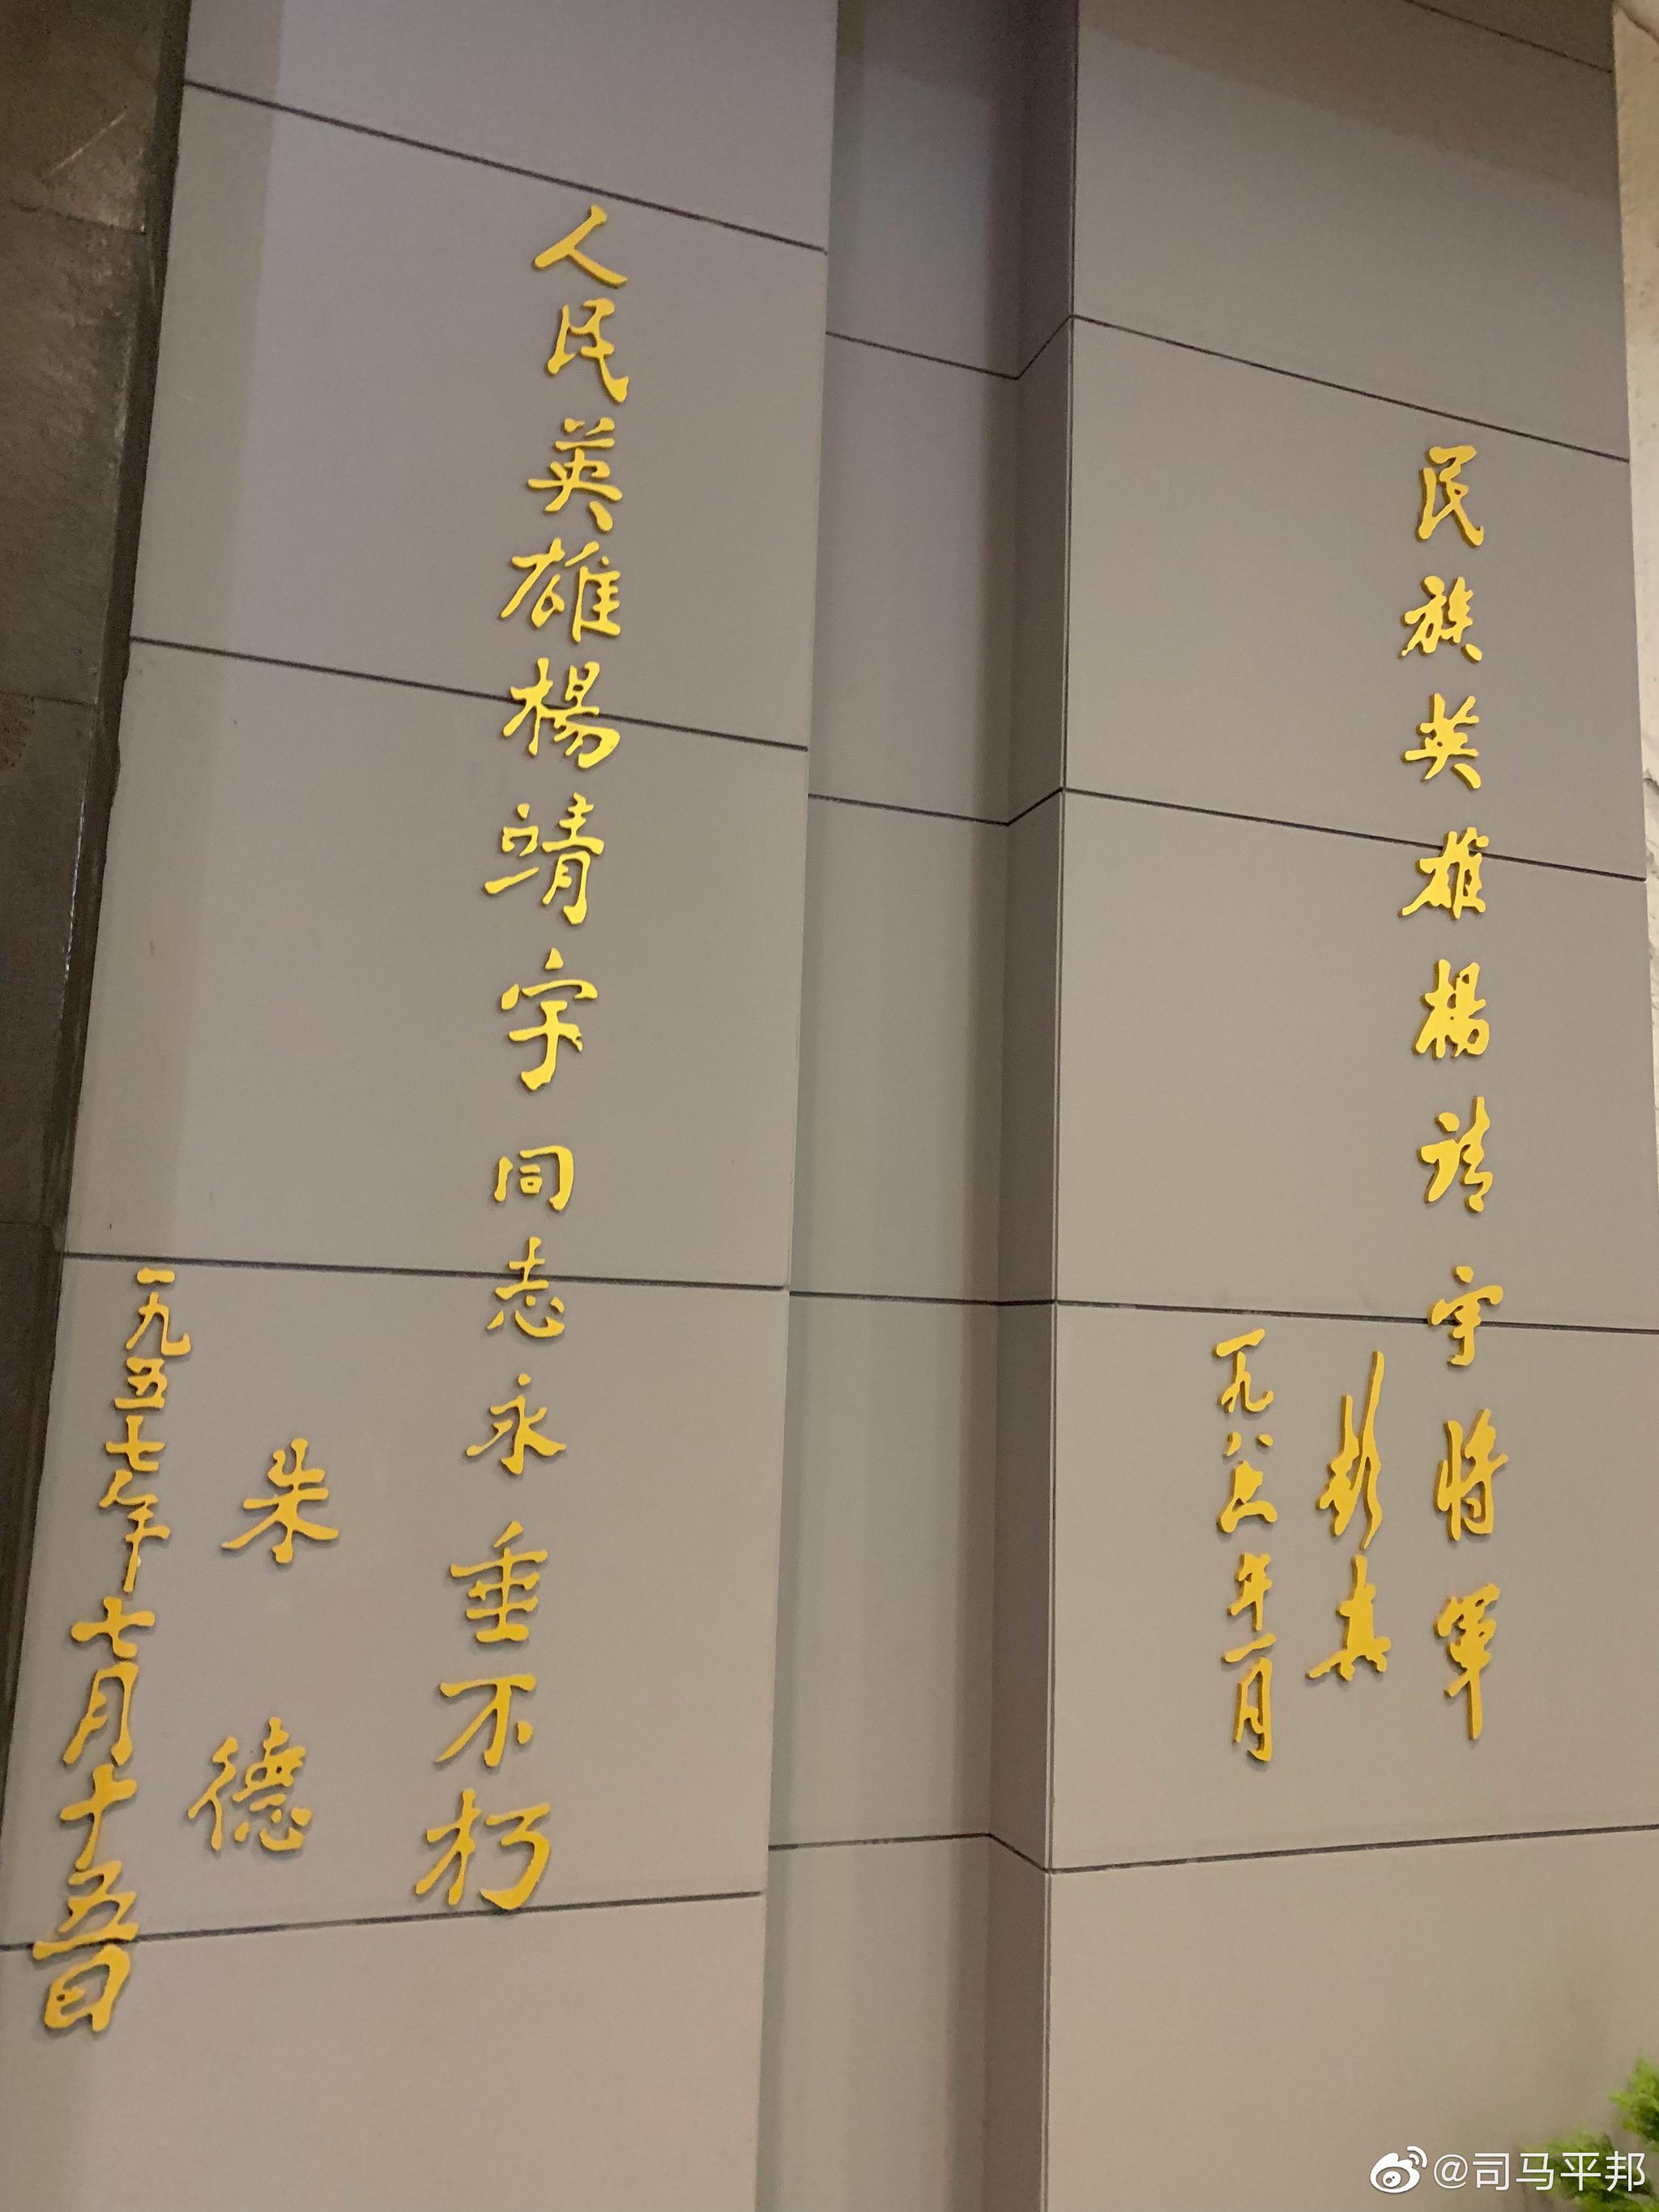 民族英雄楊靖宇将軍
彭真
一九八年一月
人民英雄楊靖宇同志永垂不朽
朱德
一九五七年七月十五日
@司马平邦